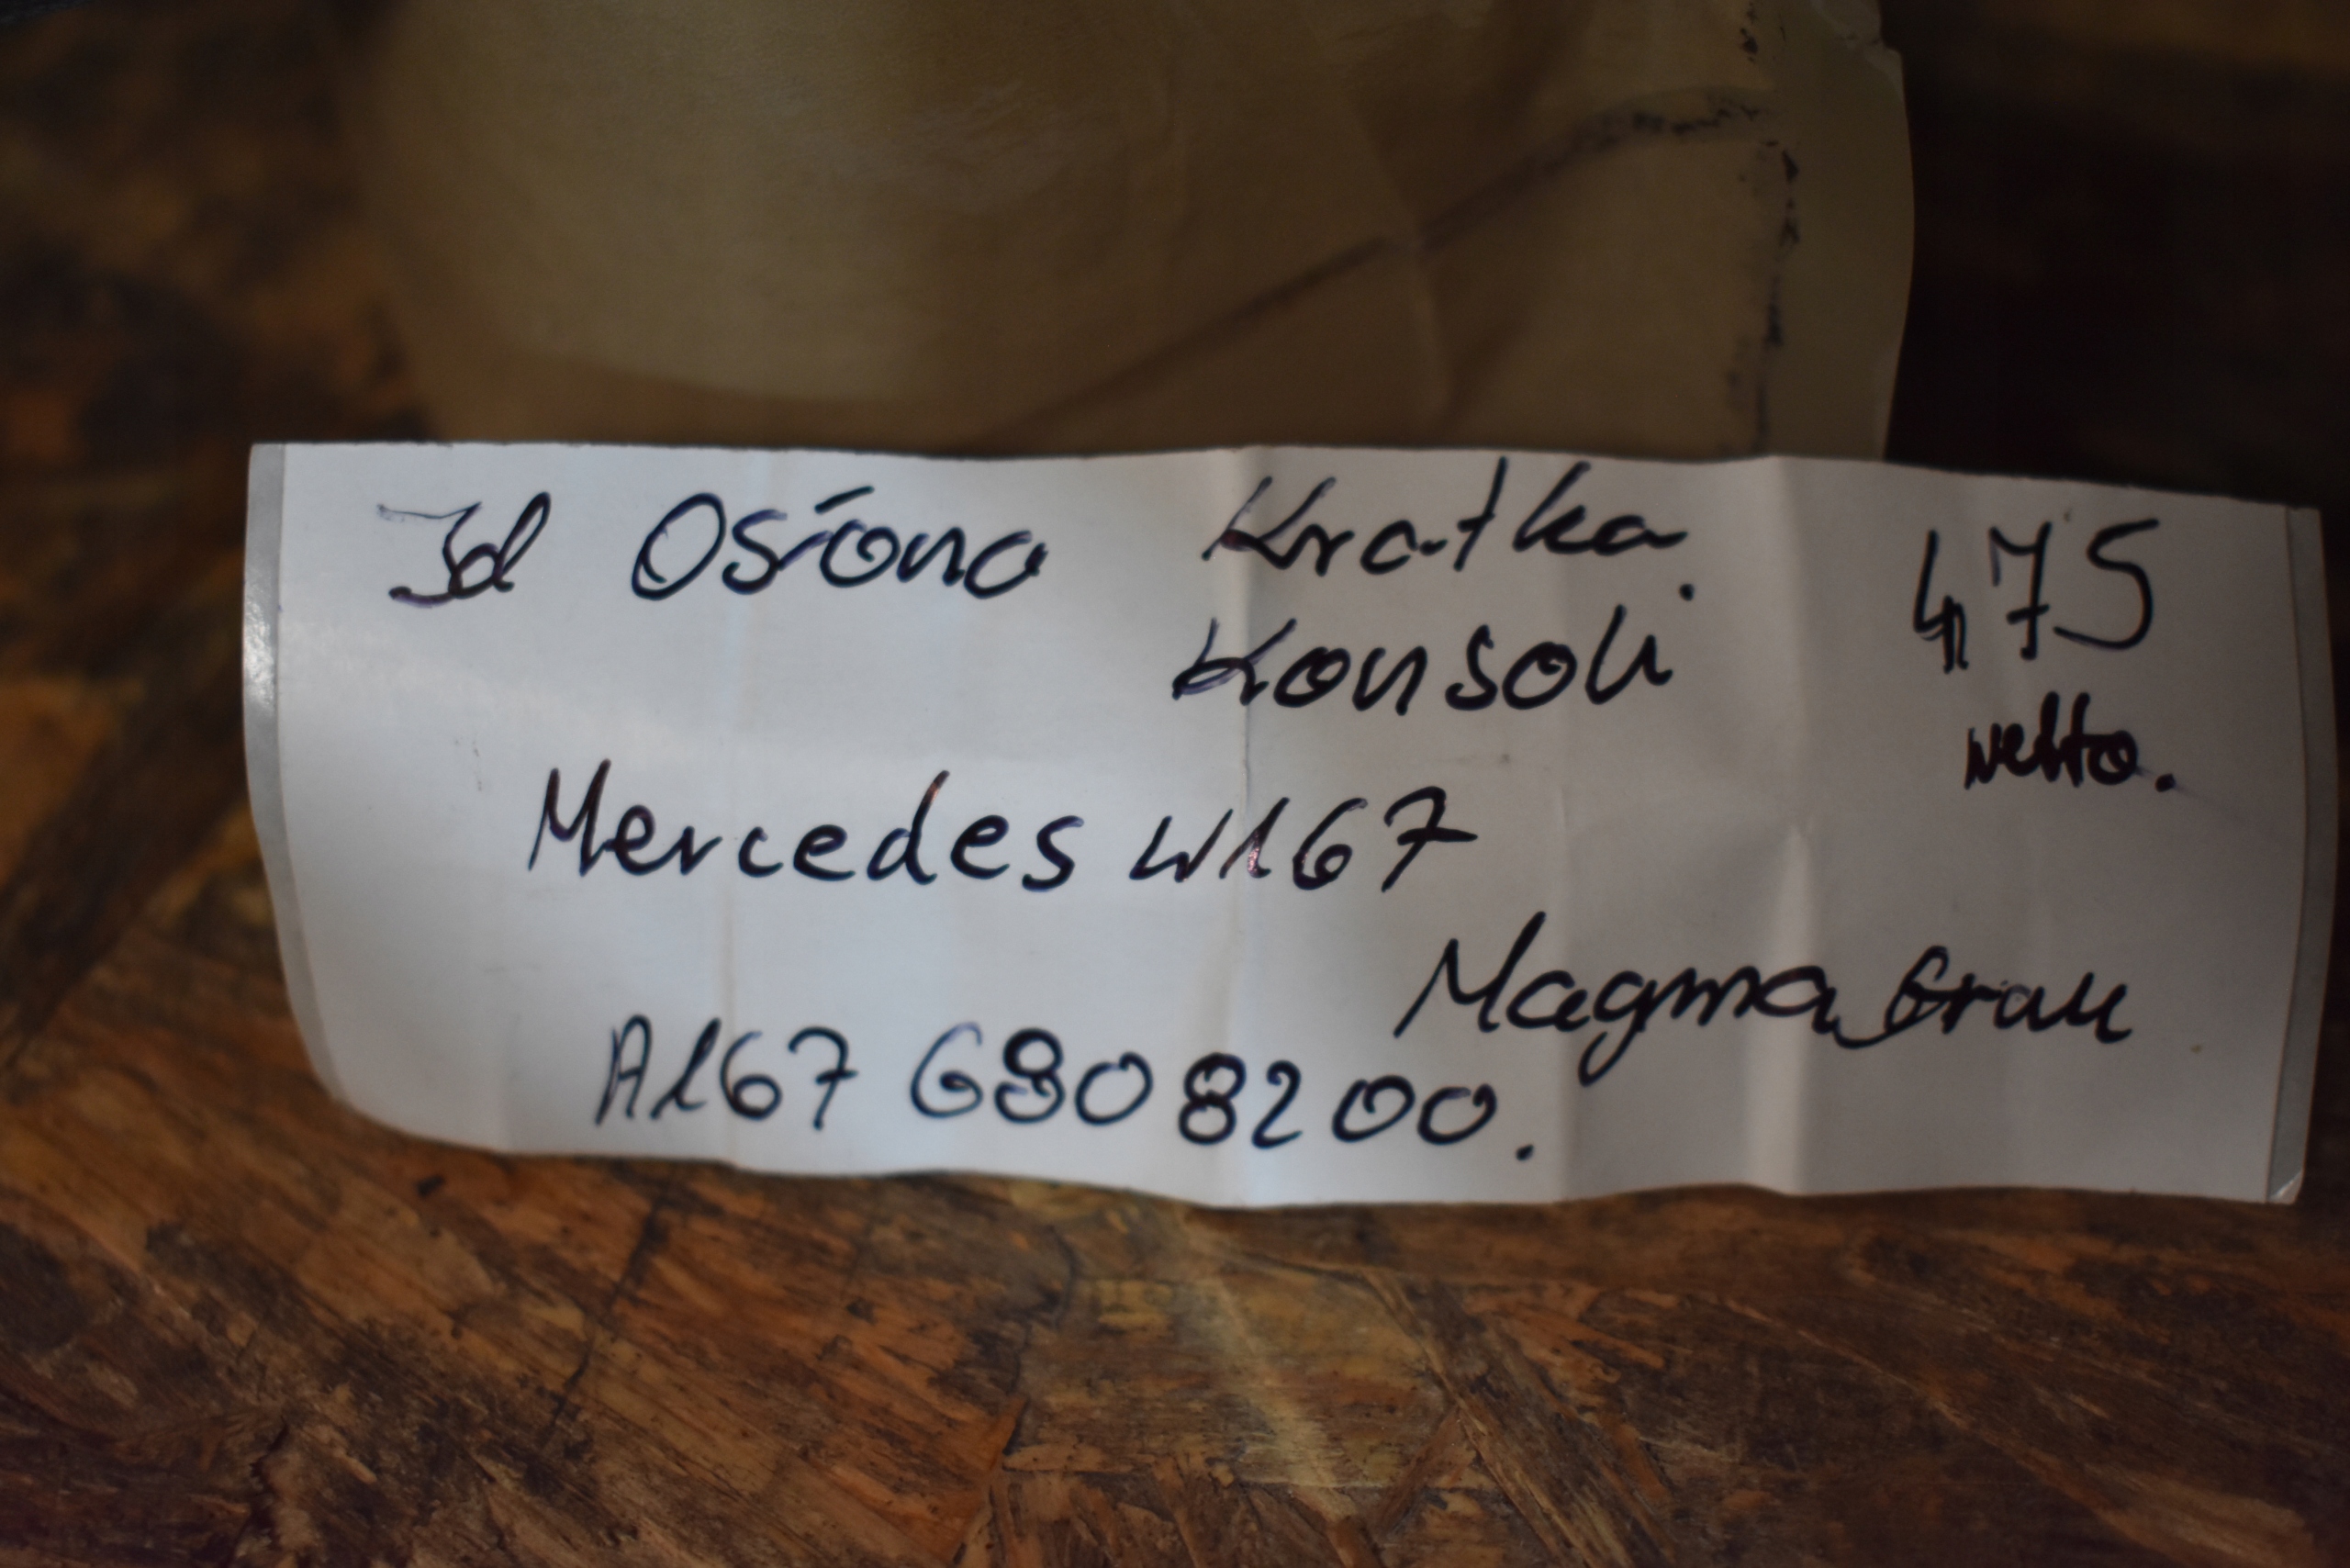 Id Osłona Kratka. 475
Konsoli netto.
Mercedes W167
Magma Grau
A167 6808200.